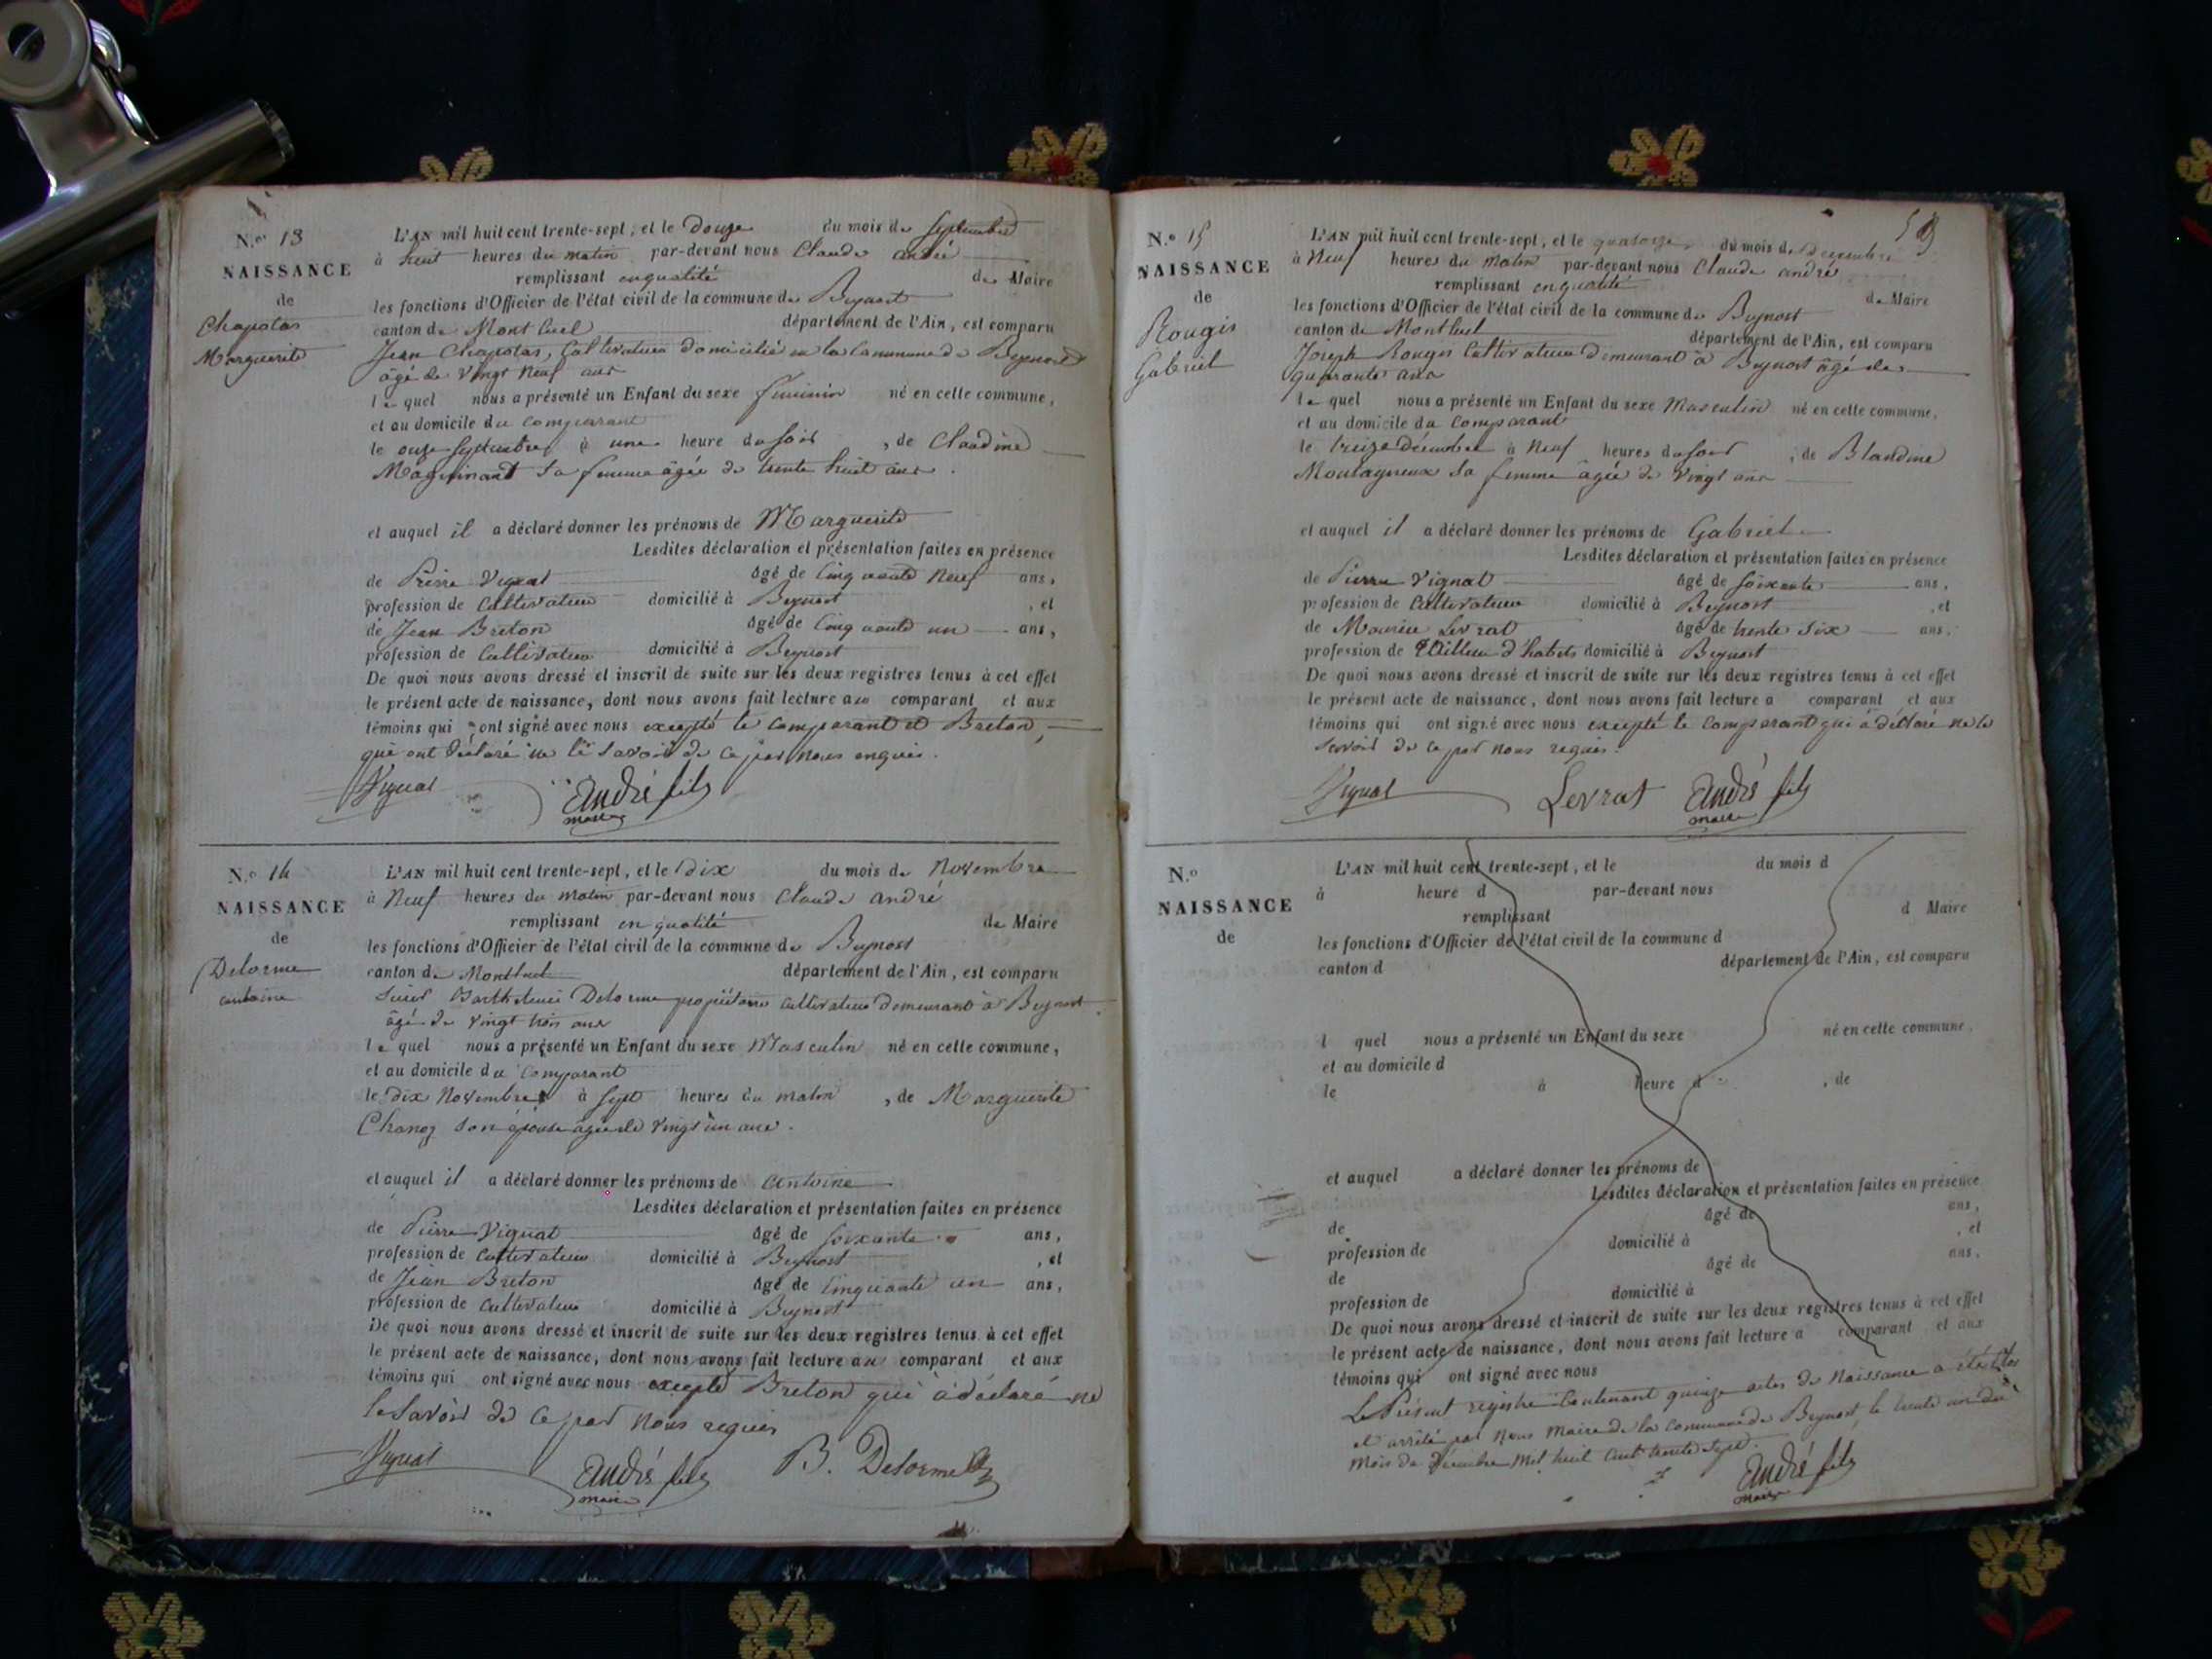 N.o 13
NAISSANCE
de
Chapotas
Marguerite
L'AN mil huit cent trente-sept, et le Douze du mois de Septembre
à huit heures du matin par-devant nous Claude andré
remplissant en qualité de Maire
les fonctions d'Officier de l'état civil de la commune de Beynost
canton de Montluel département de l'Ain, est comparu
Jean Chapotas, Cultivateur domicilié en la Commune de Beynost
âgé de vingt neuf ans
le quel nous a présenté un Enfant du sexe féminin né en cette commune,
et au domicile du comparant
le onze Septembre à une heure du soir, de Claudine
sa femme âgée de trente huit ans.
et auquel il a déclaré donner les prénoms de Marguerite
Lesdites déclaration et présentation faites en présence
de Pierre Vignat âgé de Cinquante Neuf ans,
profession de Cultivateur domicilié à Beynost, et
de Jean Breton âgé de Cinquante un ans,
profession de Cultivateur domicilié à Beynost
De quoi nous avons dressé et inscrit de suite sur les deux registres tenus à cet effet
le présent acte de naissance, dont nous avons fait lecture au comparant et aux
témoins qui ont signé avec nous excepté le comparant et Breton,
qui ont déclaré ne le savoir de ce par nous enquis.
Vignat André fils
maire
N.o 14
NAISSANCE
de
Delorme
antoine
L'AN mil huit cent trente-sept, et le Dix du mois de Novembre
à Neuf heures du matin par-devant nous Claude andré
remplissant en qualité de Maire
les fonctions d'Officier de l'état civil de la commune de Beynost
canton de Montluel département de l'Ain, est comparu
Sieur Barthelemi Delorme propriétaire cultivateur demeurant à Beynost
âgé de vingt trois ans
le quel nous a présenté un Enfant du sexe Masculin né en cette commune,
et au domicile du Comparant
le dix Novembre à sept heures du matin, de Marguerite
Chanoz son épouse âgée de vingt un ans.
et auquel il a déclaré donner les prénoms de antoine
Lesdites déclaration et présentation faites en présence
de Pierre Vignat âgé de soixante ans,
profession de Cultivateur domicilié à Beynost, et
de Jean Breton âgé de Cinquante un ans,
profession de Cultivateur domicilié à Beynost
De quoi nous avons dressé et inscrit de suite sur les deux registres tenus à cet effet
le présent acte de naissance, dont nous avons fait lecture au comparant et aux
témoins qui ont signé avec nous excepté Breton qui a déclaré ne
le Savoir de ce par nous requis
Vignat André fils B. Delorme
maire
N.o 15
NAISSANCE
de
Rougis
Gabriel
L'AN mil huit cent trente-sept, et le quatorze du mois de Décembre
à Neuf heures du matin par-devant nous Claude andré
remplissant en qualité de Maire
les fonctions d'Officier de l'état civil de la commune de Beynost
canton de Montluel département de l'Ain, est comparu
Joseph Rougis Cultivateur demeurant à Beynost âgé de
quarante ans
le quel nous a présenté un Enfant du sexe Masculin né en cette commune,
et au domicile du Comparant
le treize Décembre à Neuf heures du soir, de Blandine
Montagneux sa femme âgée de vingt ans
et auquel il a déclaré donner les prénoms de Gabriel
Lesdites déclaration et présentation faites en présence
de Pierre Vignat âgé de soixante ans,
profession de Cultivateur domicilié à Beynost, et
de Maurice Levrat âgé de trente six ans,
profession de tailleur d'habits domicilié à Beynost
De quoi nous avons dressé et inscrit de suite sur les deux registres tenus à cet effet
le présent acte de naissance, dont nous avons fait lecture a comparant et aux
témoins qui ont signé avec nous excepté le comparant qui a déclaré ne le
savoir de ce par nous requis.
Vignat Levrat André fils
maire
N.o
NAISSANCE
de
L'AN mil huit cent trente-sept, et le du mois d
à heure d par-devant nous
remplissant d Maire
les fonctions d'Officier de l'état civil de la commune d
canton d département de l'Ain, est comparu
l quel nous a présenté un Enfant du sexe né en cette commune,
et au domicile d
le à heure d, de
et auquel a déclaré donner les prénoms de
Lesdites déclaration et présentation faites en présence
de âgé de ans,
profession de domicilié à, et
de âgé de ans,
profession de domicilié à
De quoi nous avons dressé et inscrit de suite sur les deux registres tenus à cet effet
le présent acte de naissance, dont nous avons fait lecture a comparant et aux
témoins qui ont signé avec nous
Le Présent registre Contenant quinze actes de Naissance a été clos
et arrêté par Nous Maire de la commune de Beynost, le trente un du
mois de Décembre mil huit cent trente sept.
André fils
maire